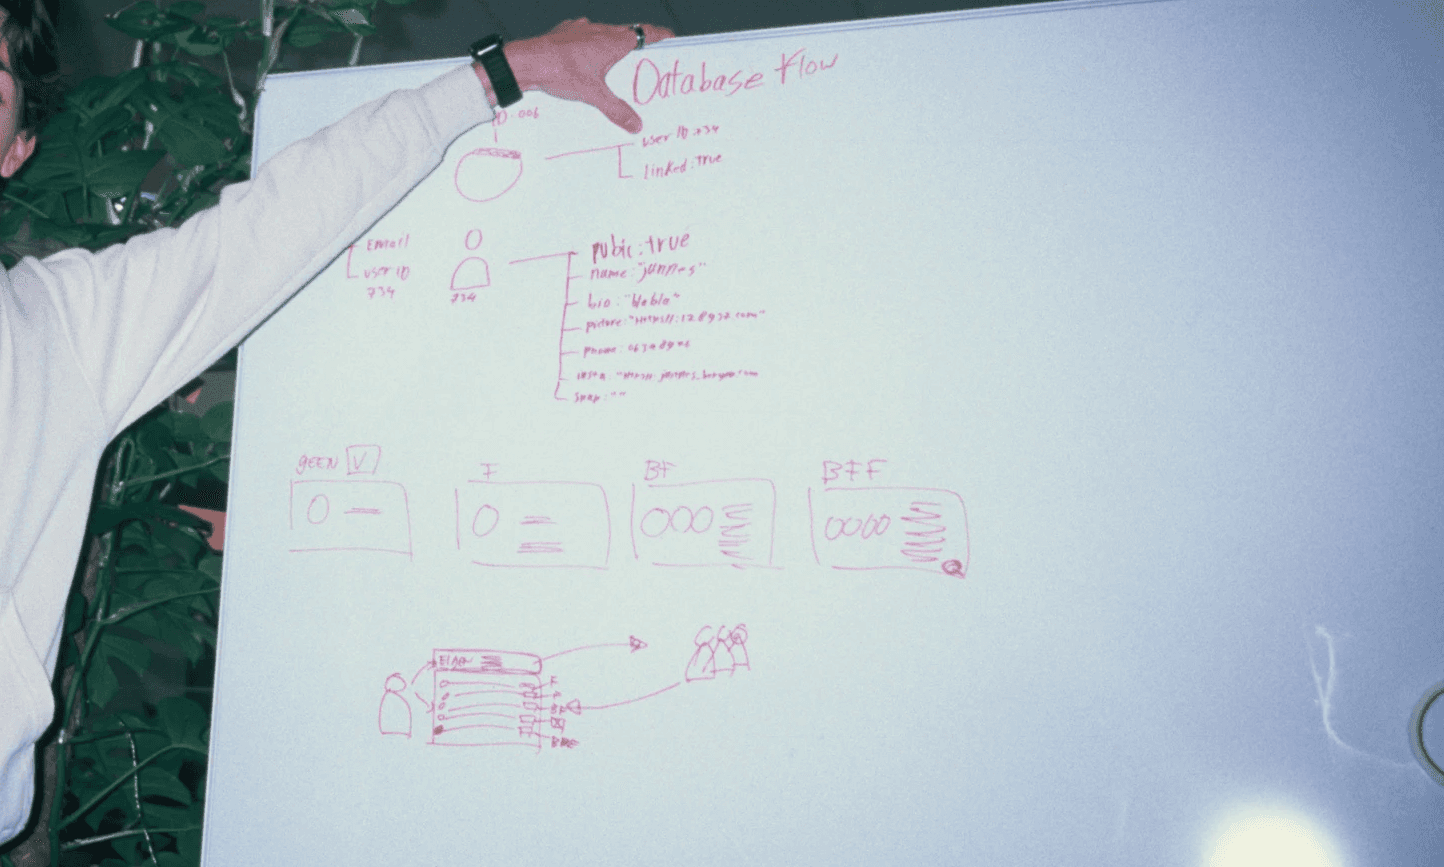 Database Flow
ID:006
user ID:734
linked:true
Email
user ID
734
734
pubic:true
name:"jannes"
bio:"blabla"
picture:
phone:
insta:
snap:""
geen V
F
BF
BFF
Eigen
F
F
BF